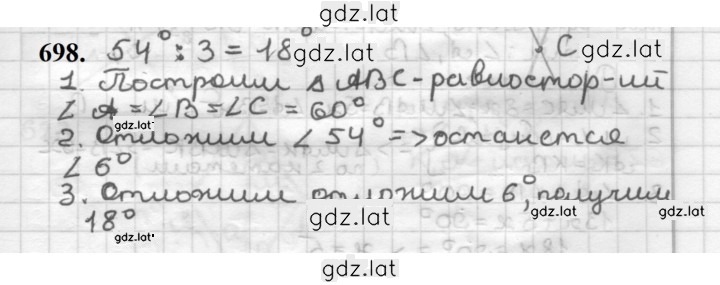 gdz.lat
698. 54° : 3 = 18° gdz.lat C
1. Построим △ ABC - равностор-ий
∠ A = ∠B = ∠C = 60°
gdz.lat
2. Отложим ∠ 54° => останется
gdz.lat
∠ 6°
3. Отложим отложим 6°, получим
18° gdz.lat gdz.lat
gdz.lat
gdz.lat